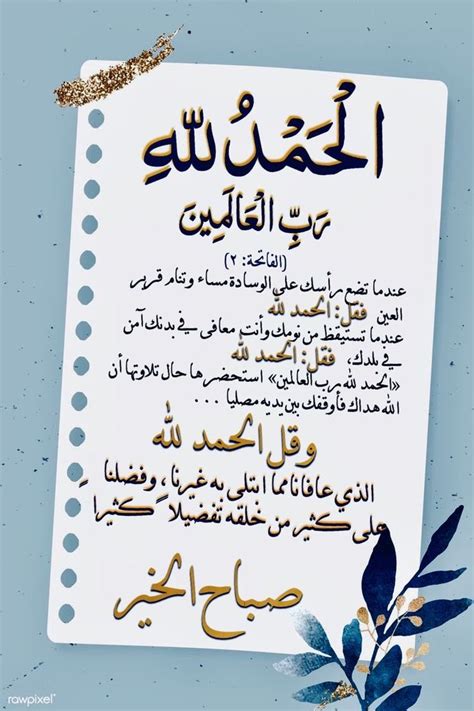 الْحَمْدُ لِلَّهِ
رَبِّ الْعَالَمِينَ
(الفاتحة: ٢)
عندما تضع رأسك على الوسادة مساء وتنام قرير
العين فقل: الحمد لله
عندما تستيقظ من نومك وأنت معافى في بدنك آمن
في بلدك، فقل: الحمد لله
«الحمد لله رب العالمين» استحضرها حال تلاوتها أن
الله هداك فأوقفك بين يديه مصليا ...
وقل الحمد لله
الذي عافانا مما ابتلى به غيرنا، وفضلنا
على كثير من خلقه تفضيلا كثيرا
صباح الخير
rawpixel